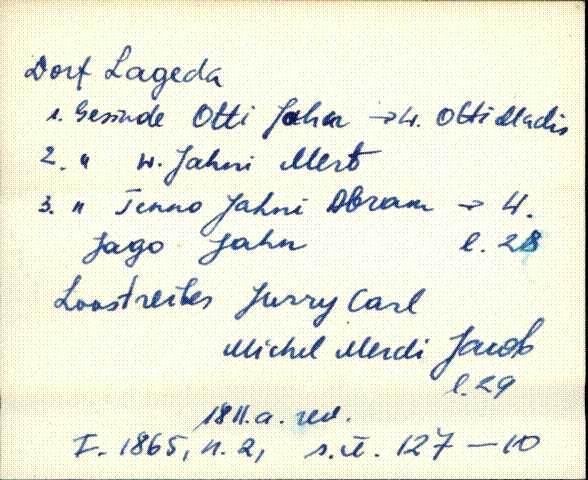 Dorf Lageda
1. Gesinde Otti Jahn → W. Otti Madis
2. " W. Jahni Mert
3. " Tenno Jahni Abram → W.
Jago Jahn l. 28
Lostreiber Jurry Carl
Michel Merdi Jacob
l. 29
1811.a. rev.
F. 1865, n. 2, s.ü. 127—10